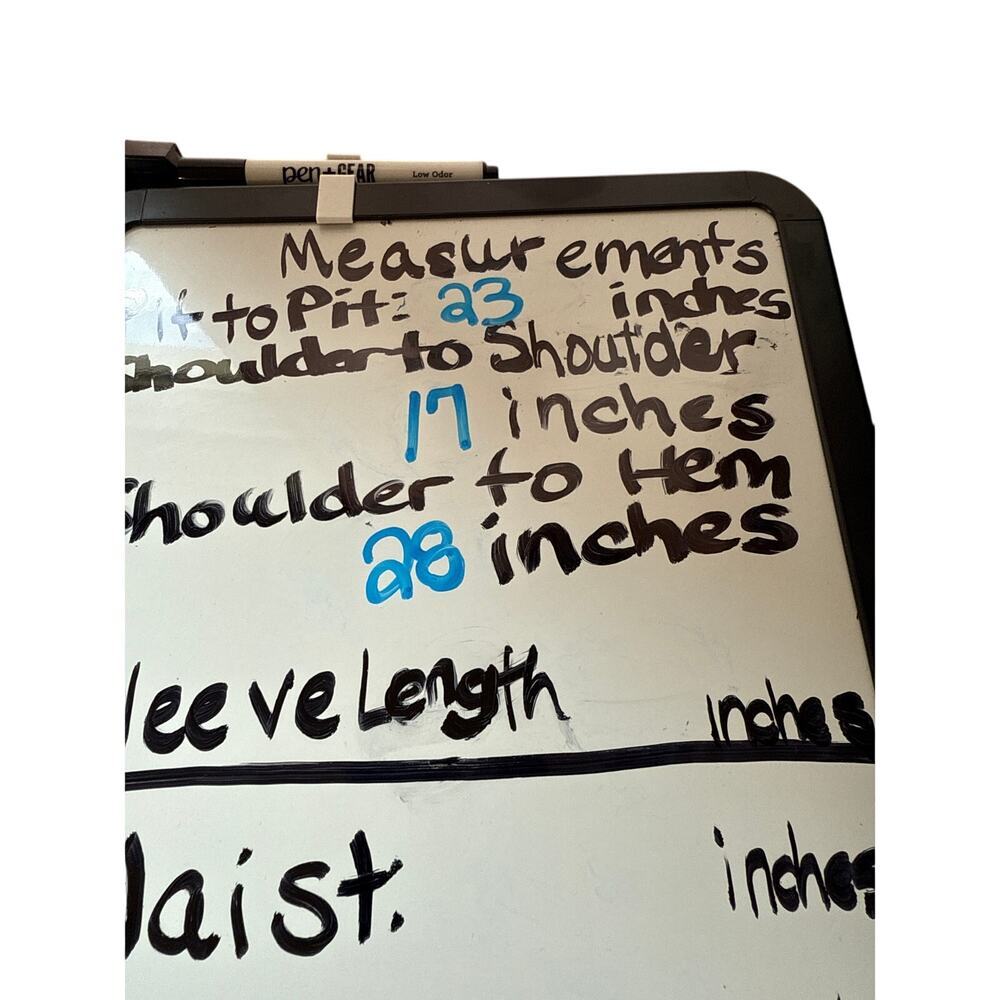 pen+GEAR Low Odor
Measurements
Pit to Pit: 23 inches
Shoulder to Shoulder
17 inches
Shoulder to Hem
28 inches
leeve Length inches
aist. inches